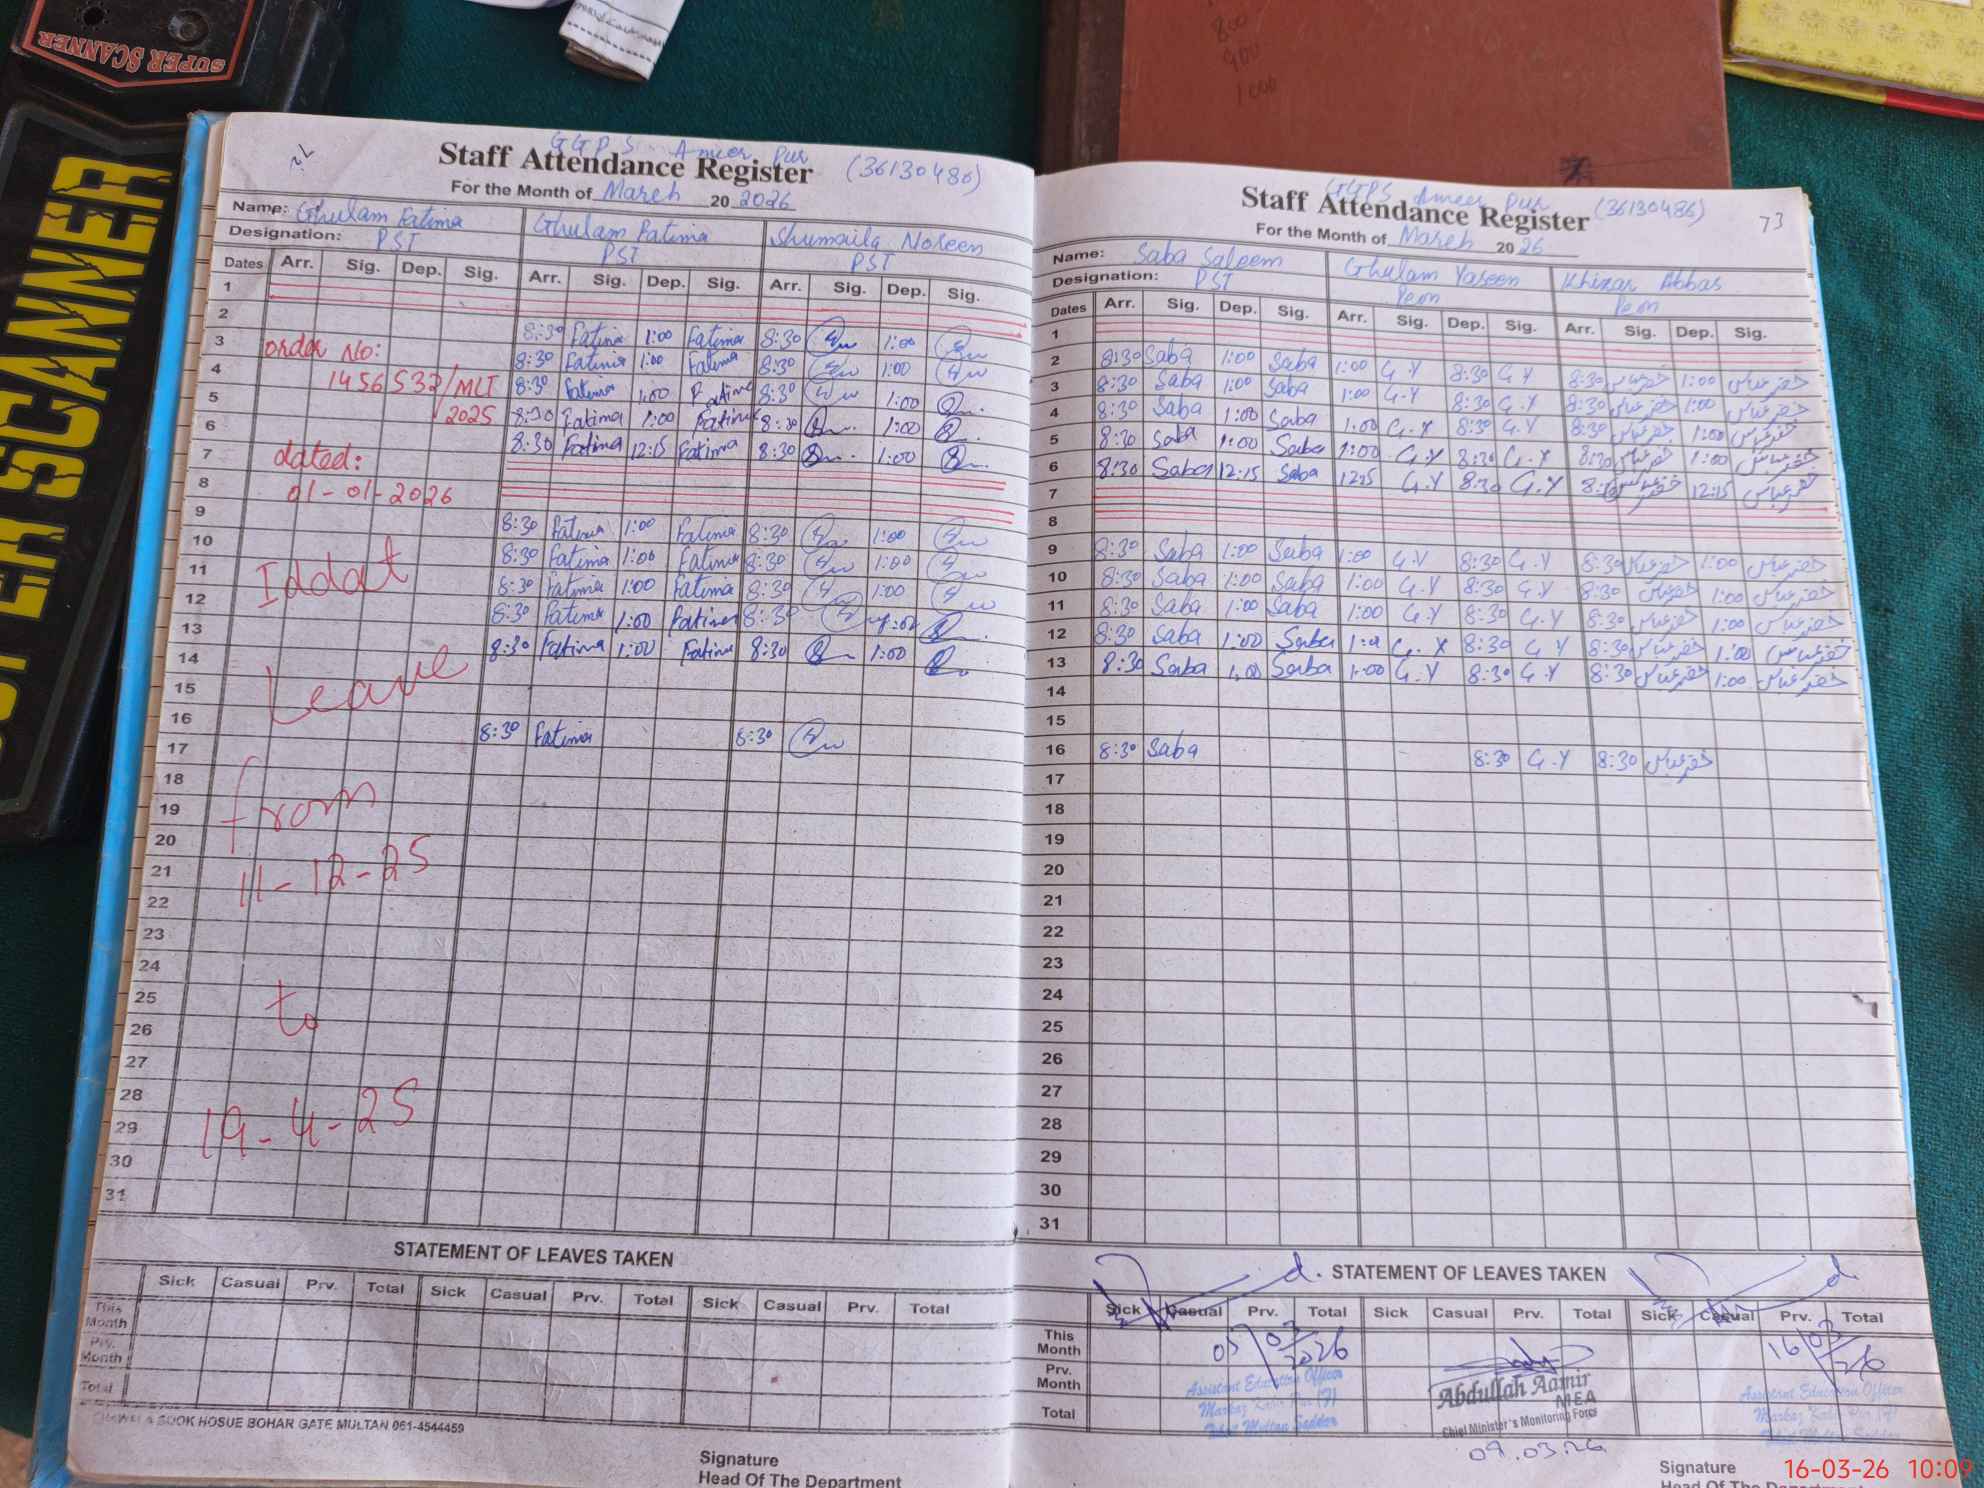 SUPER SCANNER
SUPER SCANNER
800
900
1000
72
GGPS Ameer Pur
Staff Attendance Register (36130486)
For the Month of March 20 2026
Name: Ghulam Fatima Ghulam Fatima Shumaila Noreen
Designation: PST PST PST
Dates Arr. Sig. Dep. Sig. Arr. Sig. Dep. Sig. Arr. Sig. Dep. Sig.
1
2
8:30 Fatima 1:00 Fatima 8:30 1:00
3 order No: 8:30 Fatima 1:00 Fatima 8:30 1:00
4 1456532/MLT 8:30 Fatima 1:00 Fatima 8:30 1:00
5 2025 8:30 Fatima 1:00 Fatima 8:30 1:00
6 8:30 Fatima 12:15 Fatima 8:30 1:00
7 dated:
8 01-01-2026
9 8:30 Fatima 1:00 Fatima 8:30 1:00
10 8:30 Fatima 1:00 Fatima 8:30 1:00
11 Iddat 8:30 Fatima 1:00 Fatima 8:30 1:00
12 8:30 Fatima 1:00 Fatima 8:30
13 8:30 Fatima 1:00 Fatima 8:30 1:00
14 Leave
15
16 8:30 Fatima 8:30
17
18
19 from
20
21 11-12-25
22
23
24
25 to
26
27
28
29 19-4-25
30
31
STATEMENT OF LEAVES TAKEN
Sick Casual Prv. Total Sick Casual Prv. Total Sick Casual Prv. Total
This Month
Prv. Month
Total
BOOK HOSUE BOHAR GATE MULTAN 061-4544459
Signature
Head Of The Department
GGPS Ameer Pur
Staff Attendance Register (36130486) 73
For the Month of March 20 26
Name: Saba Saleem Ghulam Yaseen Khizar Abbas
Designation: PST Peon Peon
Dates Arr. Sig. Dep. Sig. Arr. Sig. Dep. Sig. Arr. Sig. Dep. Sig.
1
2 8:30 Saba 1:00 Saba 1:00 G.Y 8:30 G.Y 8:30 خضر عباس 1:00 خضر عباس
3 8:30 Saba 1:00 Saba 1:00 G.Y 8:30 G.Y 8:30 خضر عباس 1:00 خضر عباس
4 8:30 Saba 1:00 Saba 1:00 G.Y 8:30 G.Y 8:30 خضر عباس 1:00 خضر عباس
5 8:30 Saba 1:00 Saba 1:00 G.Y 8:30 G.Y 8:30 خضر عباس 1:00 خضر عباس
6 8:30 Saba 12:15 Saba 12:15 G.Y 8:30 G.Y 8:30 خضر عباس 12:15 خضر عباس
7
8
9 8:30 Saba 1:00 Saba 1:00 G.Y 8:30 G.Y 8:30 خضر عباس 1:00 خضر عباس
10 8:30 Saba 1:00 Saba 1:00 G.Y 8:30 G.Y 8:30 خضر عباس 1:00 خضر عباس
11 8:30 Saba 1:00 Saba 1:00 G.Y 8:30 G.Y 8:30 خضر عباس 1:00 خضر عباس
12 8:30 Saba 1:00 Saba G.Y 8:30 G.Y 8:30 خضر عباس 1:00 خضر عباس
13 8:30 Saba 1:00 Saba 1:00 G.Y 8:30 G.Y 8:30 خضر عباس 1:00 خضر عباس
14
15
16 8:30 Saba 8:30 G.Y 8:30 خضر عباس
17
18
19
20
21
22
23
24
25
26
27
28
29
30
31
STATEMENT OF LEAVES TAKEN
Sick Casual Prv. Total Sick Casual Prv. Total Sick Casual Prv. Total
This Month 03/2026 16/03/26
Prv. Month
Total
Assistant Education Officer
Markaz
Tehsil Multan Saddar
Abdullah Aamir
MEA
Chief Minister's Monitoring Force
09.03.26
Assistant Education Officer
Markaz
Signature
Head Of The Department
16-03-26 10:09